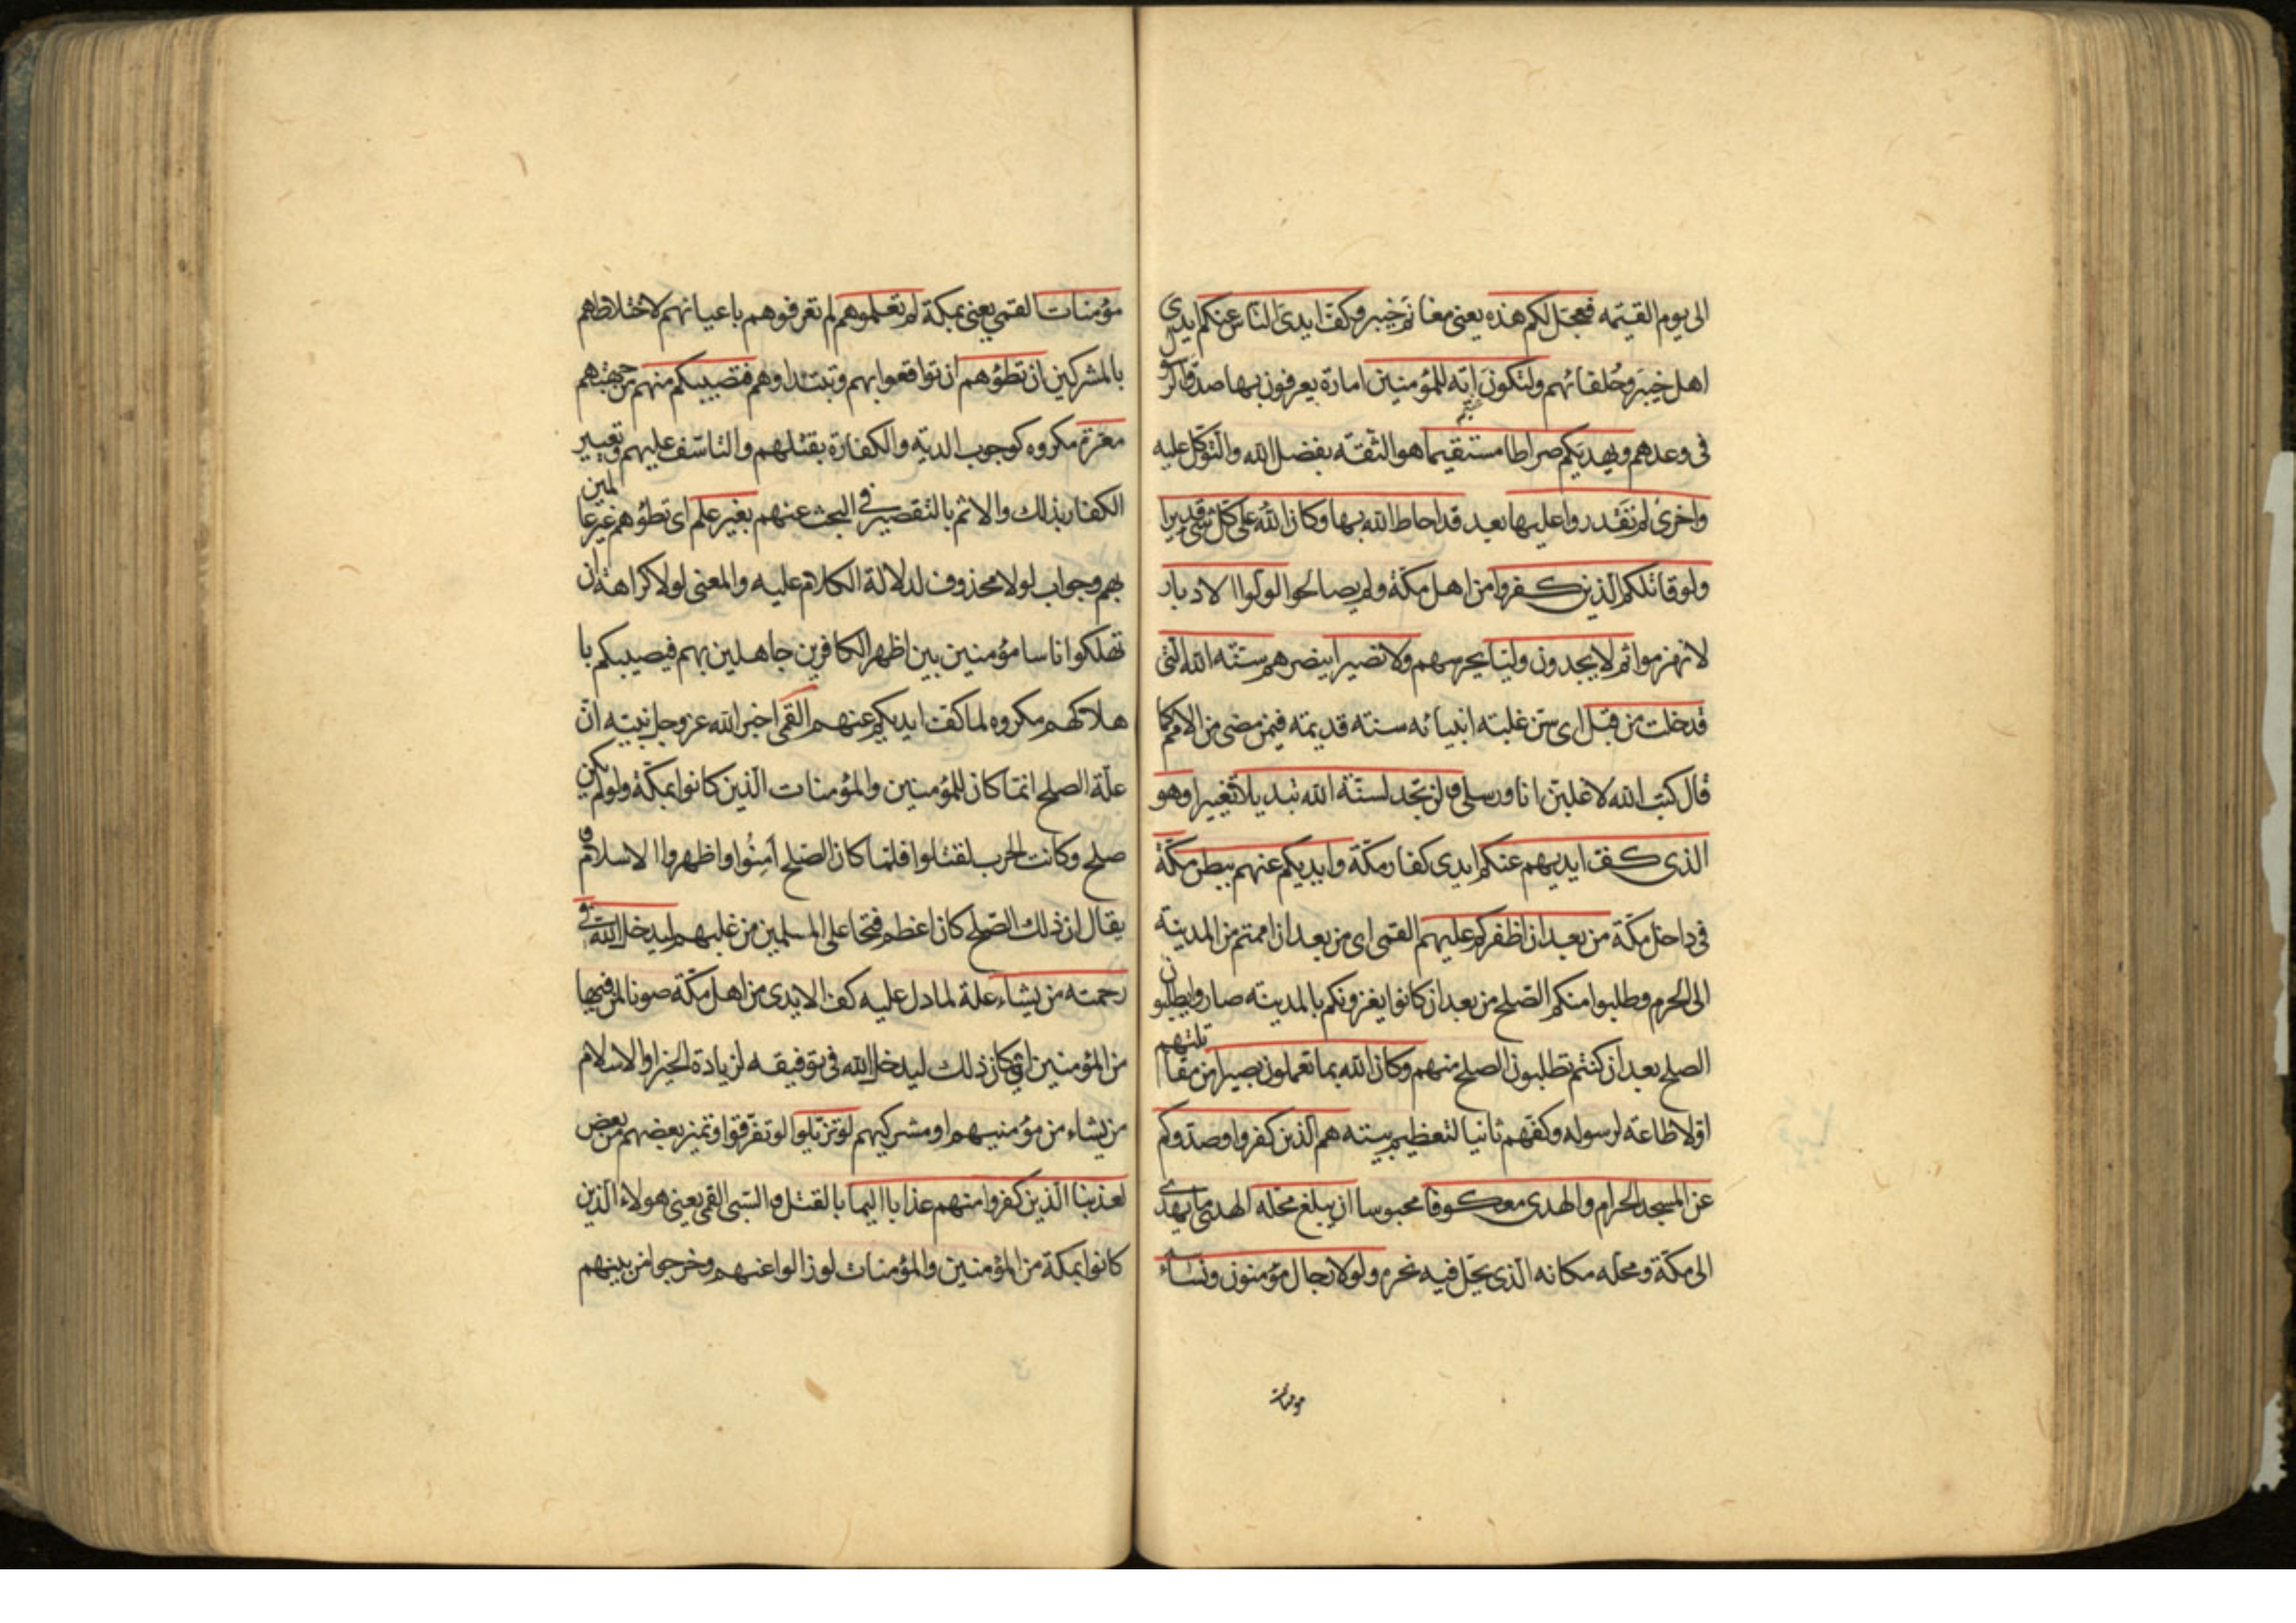 الى يوم القيمه فعجل لكم هذه يعنى مغانم خيبر وكف ايدى الناس عنكم ايدى
اهل خيبر وحلفائهم ولتكون اية للمؤمنين امارة يعرفون بها صدق الرسول
فى وعدهم ويهديكم صراطا مستقيما هو الثقة بفضل الله والتوكل عليه
واخرى لم تقدروا عليها بعد قد احاط الله بها وكان الله على كل شئ قديرا
ولو قاتلكم الذين كفروا من اهل مكة ولم يصالحوا لولوا الادبار
لانهزموا ثم لا يجدون وليا يحرسهم ولا نصيرا ينصرهم سنة الله التى
قد خلت من قبل اى سن غلبة انبيائه سنة قديمة فيمن مضى من الامم كما
قال كتب الله لاغلبن انا ورسلى ولن تجد لسنة الله تبديلا تغييرا وهو
الذى كف ايديهم عنكم ايدى كفار مكة وايديكم عنهم ببطن مكة
فى داخل مكة من بعد ان اظفركم عليهم القمى اى من بعد ان اممتم من المدينة
الى الحرم وطلبوا منكم الصلح من بعد ان كانوا يغزونكم بالمدينة صاروا يطلبون
الصلح بعد ان كنتم تطلبون الصلح منهم وكان الله بما تعملون بصيرا من مقاتلتهم
اولا طاعة لرسوله وكفهم ثانيا لتعظيم بيته هم الذين كفروا وصدوكم
عن المسجد الحرام والهدى معكوفا محبوسا ان يبلغ محله الهدى ما يهدى
الى مكة ومحله مكانه الذى يحل فيه نحره ولولا رجال مؤمنون ونساء
مؤمنات
مؤمنات القمي يعنى بمكة لم تعلموهم لم تعرفوهم باعيانهم لاختلاطهم
بالمشركين ان تطؤهم ان تواقعوا بهم وتبتدأوهم فتصيبكم منهم من جهتهم
معرة مكروه كوجوب الدية والكفارة بقتلهم والتاسف عليهم وتعيير
الكفار بذلك والاثم بالتقصير فى البحث عنهم بغير علم اى تطؤهم غير عالمين
بهم وجواب لولا محذوف لدلالة الكلام عليه والمعنى لولا كراهة ان
تهلكوا اناسا مؤمنين بين اظهر الكافرين جاهلين بهم فيصيبكم با
هلاكهم مكروه لما كف ايديكم عنهم القمى اخبر الله عز وجل نبيه ان
علة الصلح انما كان للمؤمنين والمؤمنات الذين كانوا بمكة ولو لم يكن
صلح وكانت الحرب لقتلوا فلما كان الصلح امنوا واظهروا الاسلام و
يقال ان ذلك الصلح كان اعظم فتحا على المسلمين من غلبهم ليدخل الله فى
رحمته من يشاء علة لما دل عليه كف الايدى من اهل مكة صونا لمن فيها
من المؤمنين اى كان ذلك ليدخل الله فى توفيقه لزيادة الخير او الاسلام
من يشاء من مؤمنيهم او مشركيهم لو تزيلوا لو تفرقوا وتميز بعضهم من بعض
لعذبنا الذين كفروا منهم عذابا اليما بالقتل والسبى القمى يعنى هولاء الذين
كانوا بمكة من المؤمنين والمؤمنات لو زالوا عنهم وخرجوا من بينهم